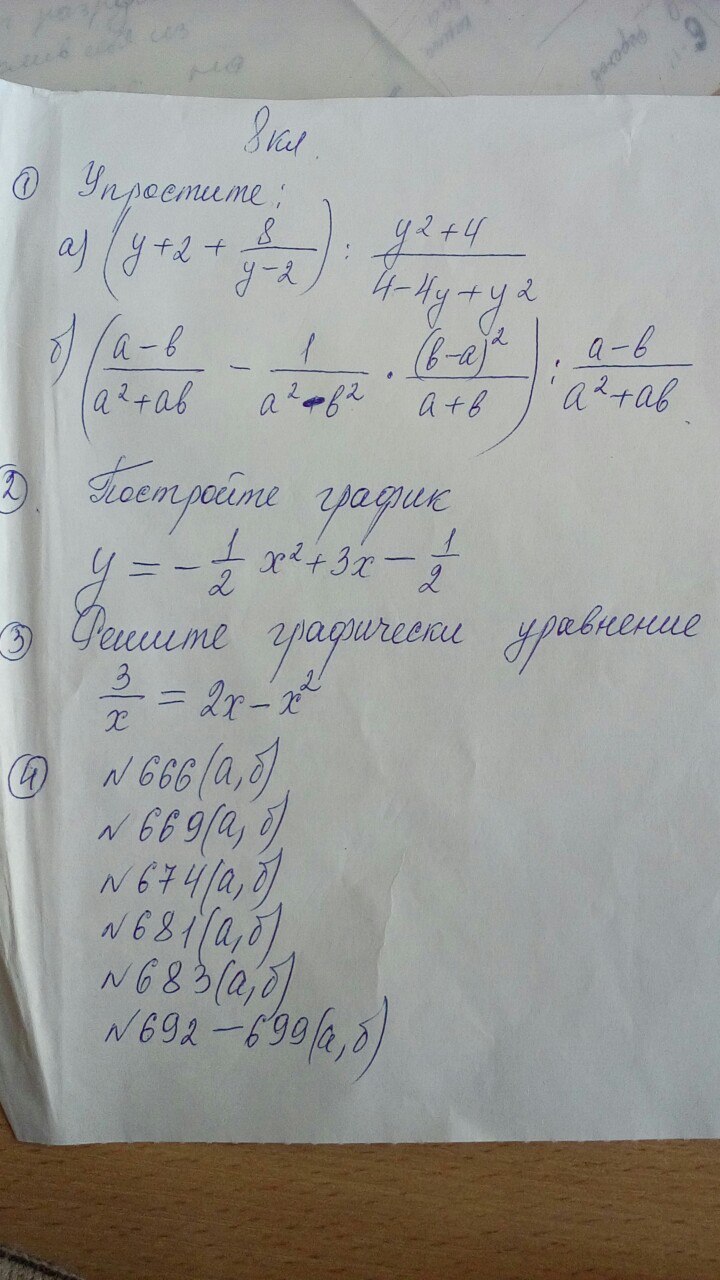 8кл.
① Упростите:
а) (y+2 + 8/(y-2)) : (y²+4)/(4-4y+y²)
б) ((a-в)/(a²+aв) - 1/(a²-в²) · (в-a)²/(a+в)) : (a-в)/(a²+aв).
② Постройте график
y = -1/2 x²+3x - 1/2
③ Решите графически уравнение
3/x = 2x-x²
④ №666(а,б)
№669(а,б)
№674(а,б)
№681(а,б)
№683(а,б)
№692-699(а,б)